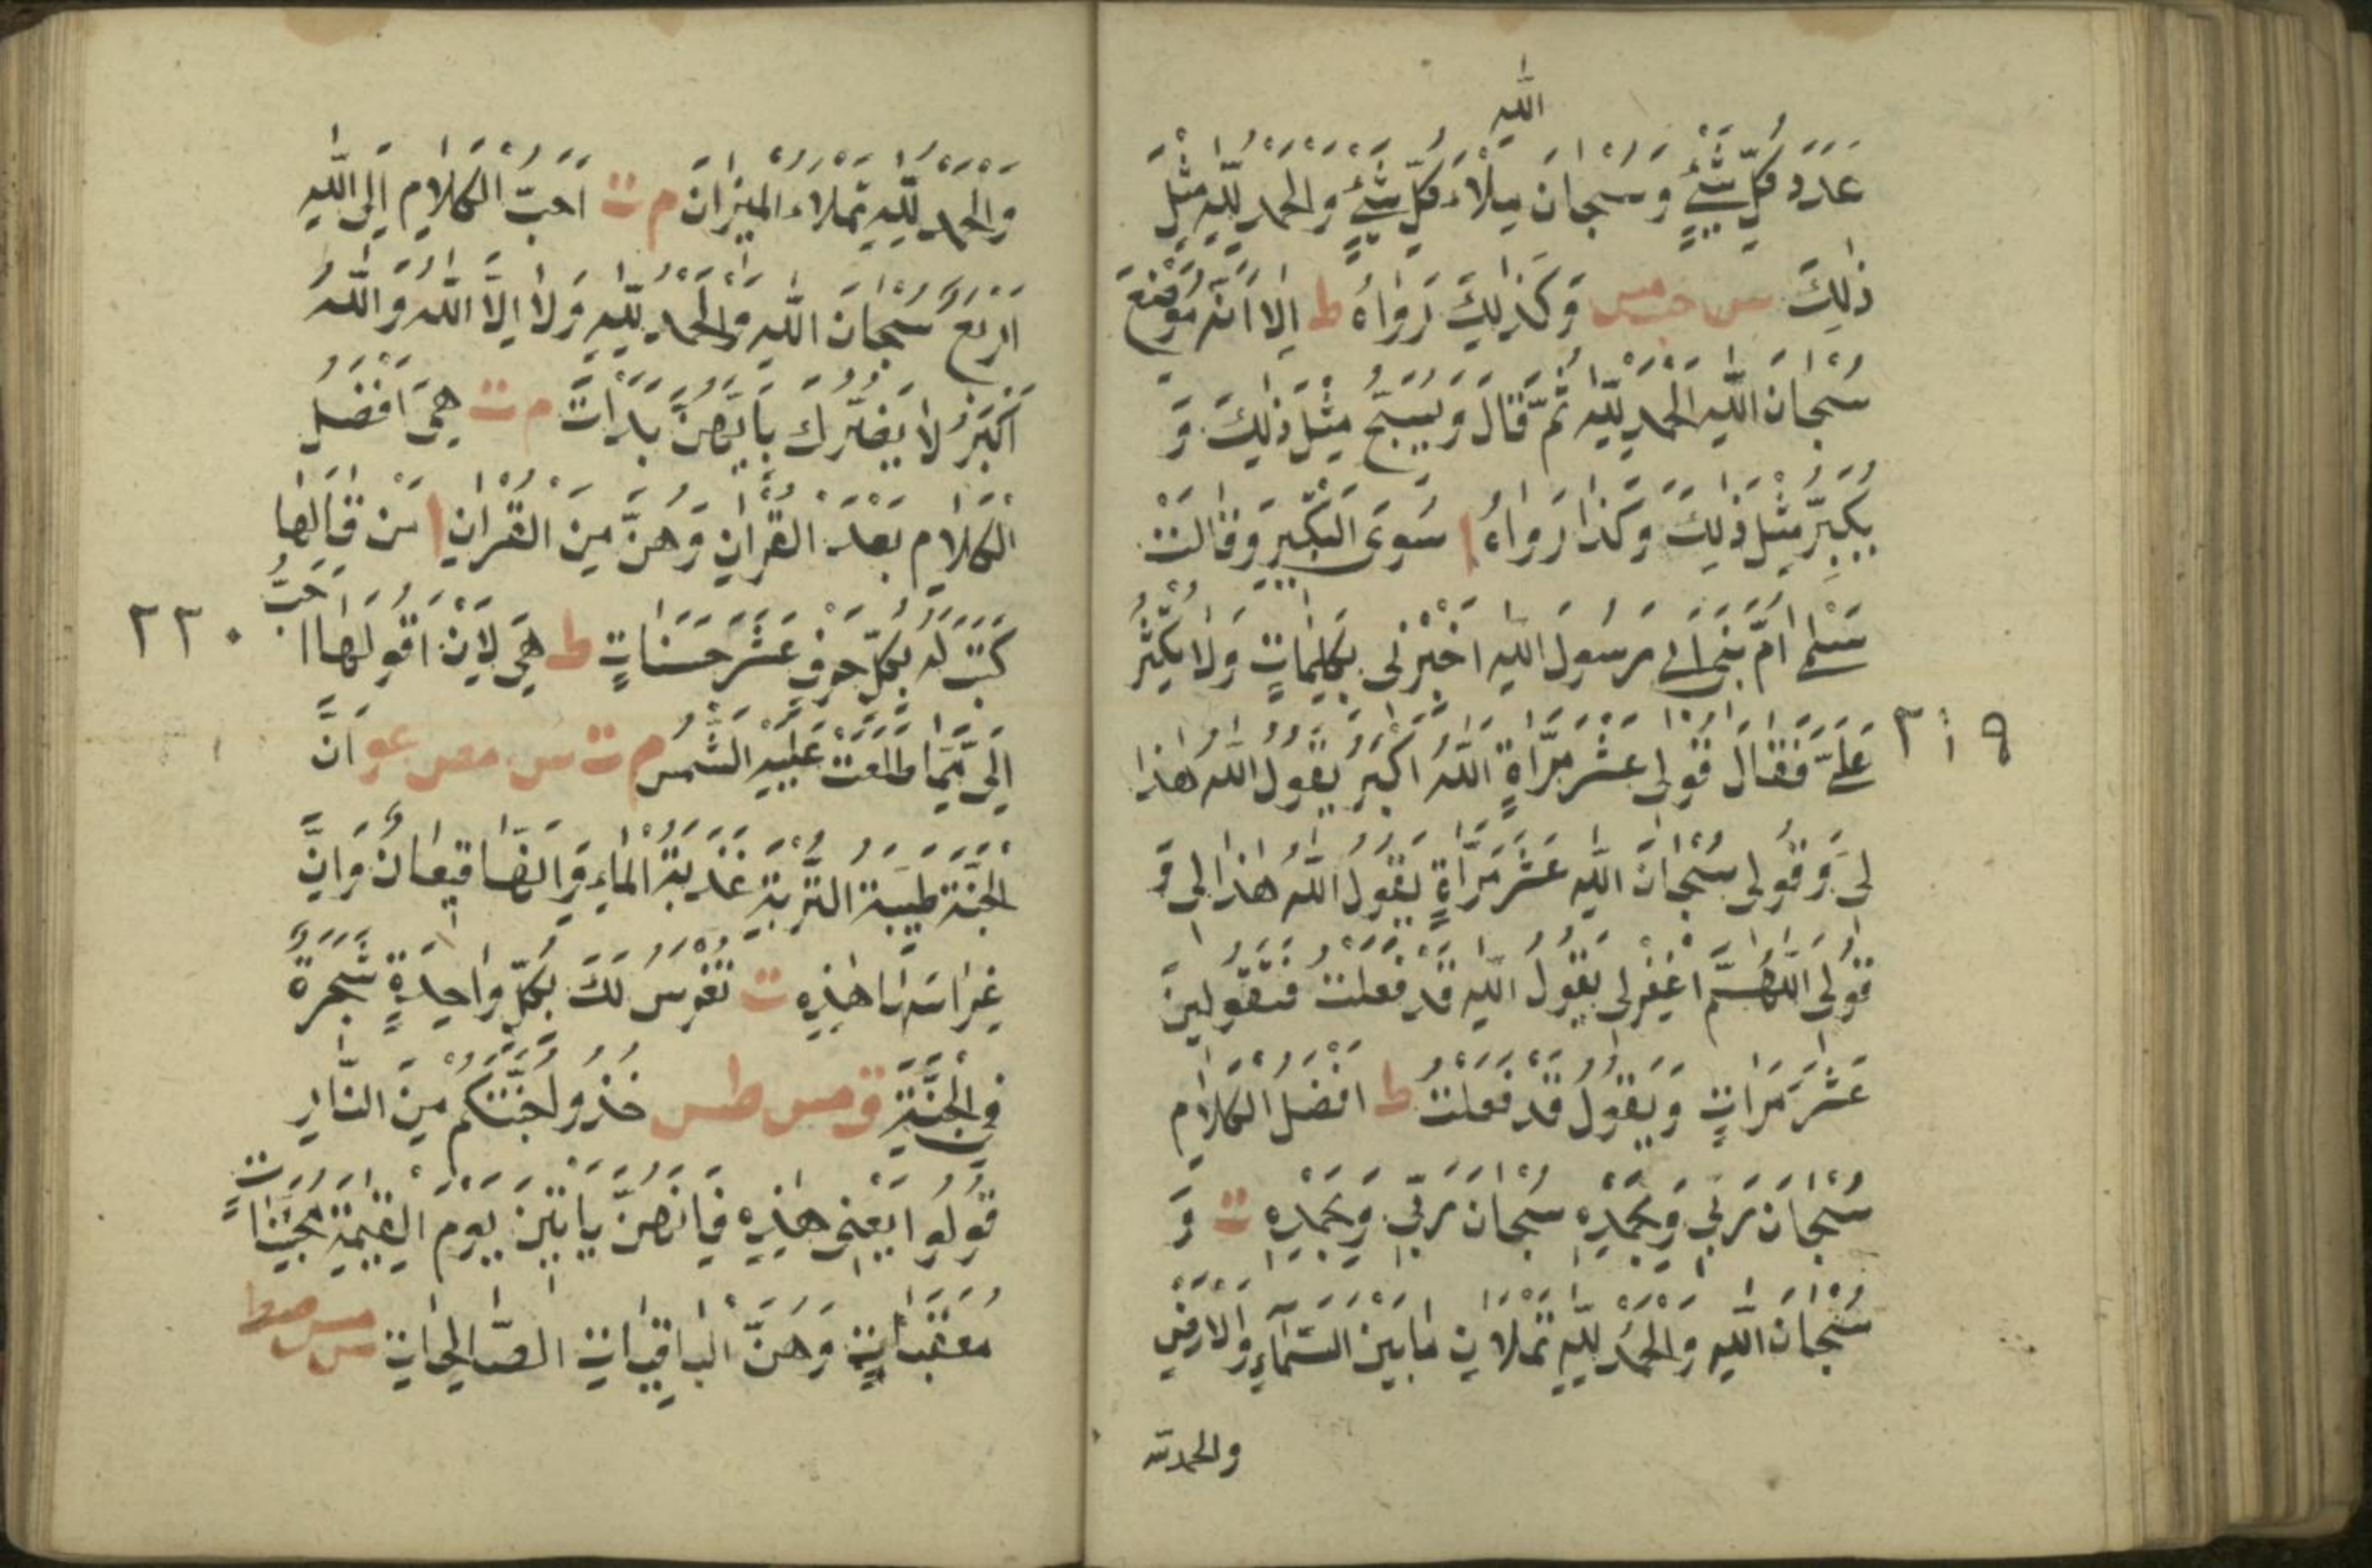 الله
عَدَدَ كُلِّ شَيْءٍ وَسُبْحَانَ مِلْاَءَ كُلِّ شَيْءٍ وَالْحَمْدُ لِلّٰهِ مِثْلَ
ذٰلِكَ س حب مس وَكَذٰلِكَ رَوَاهُ ط اِلَّا اَنَّهُ مَوْضِعَ
سُبْحَانَ اللّٰهِ الْحَمْدُ لِلّٰهِ ثُمَّ قَالَ وَيُسَبِّحُ مِثْلَ ذٰلِكَ وَ
يُكَبِّرُ مِثْلَ ذٰلِكَ وَكَذَا رَوَاهُ ا سَوَى التَّكْبِيرِ وَقَالَتْ
سَلْمٰى اُمُّ بَنِى اَبِى رَسُولَ اللّٰهِ اَخْبِرْنِى بِكَلِمَاتٍ وَلَا يُكْثِرُ
٢١٩
عَلَىَّ فَقَالَ قُولِى عَشْرَ مَرَّاةٍ اللّٰهُ اَكْبَرُ يَقُولُ اللّٰهُ هٰذَا
لِى وَقُولِى سُبْحَانَ اللّٰهِ عَشْرَ مَرَّاةٍ يَقُولُ اللّٰهُ هٰذَا لِى وَ
قُولِى اللّٰهُمَّ اغْفِرْلِى يَقُولُ اللّٰهِ قَدْ فَعَلْتُ فَتَقُولِينَ
عَشْرَ مَرَاتٍ وَيَقُولُ قَدْ فَعَلْتُ ط اَفْضَلُ الْكَلَامِ
سُبْحَانَ رَبِّى وَبِحَمْدِهِ سُبْحَانَ رَبِّى وَبِحَمْدِهِ ت وَ
سُبْحَانَ اللّٰهِ وَالْحَمْدُ لِلّٰهِ تَمْلَاَنِ مَا بَيْنَ السَّمَآءِ وَالْاَرْضِ
والحمدلله
وَالْحَمْدُ لِلّٰهِ تَمْلَاءُ الْمِيْزَانَ م ت اَحَبُّ الْكَلَامِ اِلَى اللّٰهِ
اَرْبَعٌ سُبْحَانَ اللّٰهِ وَالْحَمْدُ لِلّٰهِ وَلَا اِلَّا اللّٰهُ وَاللّٰهُ
اَكْبَرُ لَا يَضُرُّكَ بِاَيِّهِنَّ بَدَاَتَ م ت هِىَ اَفْضَلُ
الْكَلَامِ بَعْدَ الْقُرْاٰنِ وَهُنَّ مِنَ الْقُرْاٰنِ ا مَنْ قَالَهَا
كُتِبَ لَهُ بِكُلِّ حَرْفٍ عَشْرَ حَسَنَاتٍ ط هِىَ لَاِنْ اَقُولَهَا اَحَبُّ
٢٢٠
اِلَىَّ مِمَّا طَلَعَتْ عَلَيْهِ الشَّمْسُ م ت س مص عو اَنَّ
الْجَنَّةَ طَيِّبَةُ التُّرْبَةِ عَذْبَةُ الْمَاءِ وَاَنَّهَا قِيعَانٌ وَاَنَّ
غِرَاسَهَا هٰذِهِ ت تُغْرَسُ لَكَ بِكُلِّ وَاحِدَةٍ شَجَرَةٌ
فِى الْجَنَّةِ ق مس طس خُذُوا جُنَّتَكُمْ مِنَ النَّارِ
قُولُوا يَعْنِى هٰذِهِ فَاِنَّهُنَّ يَاْتِينَ يَوْمَ الْقِيٰمَةِ مُجَنِّبَاتٍ
مُعَقِّبَاتٍ وَهُنَّ الْبَاقِيَاتُ الصَّالِحَاتِ س مس صط